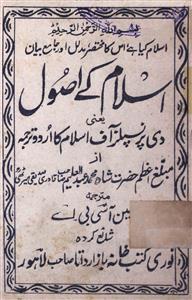 بسم اللہ الرحمن الرحیم
اسلام کیا ہے اس کا مختصر مدلل اور جامع بیان
اسلام کے اصول
یعنی
دی پرنسپلز آف اسلام کا اردو ترجمہ
از
مبلغ اعظم حضرت شاہ محمد عبدالعلیم صدیقی قادری
مترجمہ
آسی بی اے
شائع کردہ
نوری کتب خانہ بازار داتا صاحب لاہور